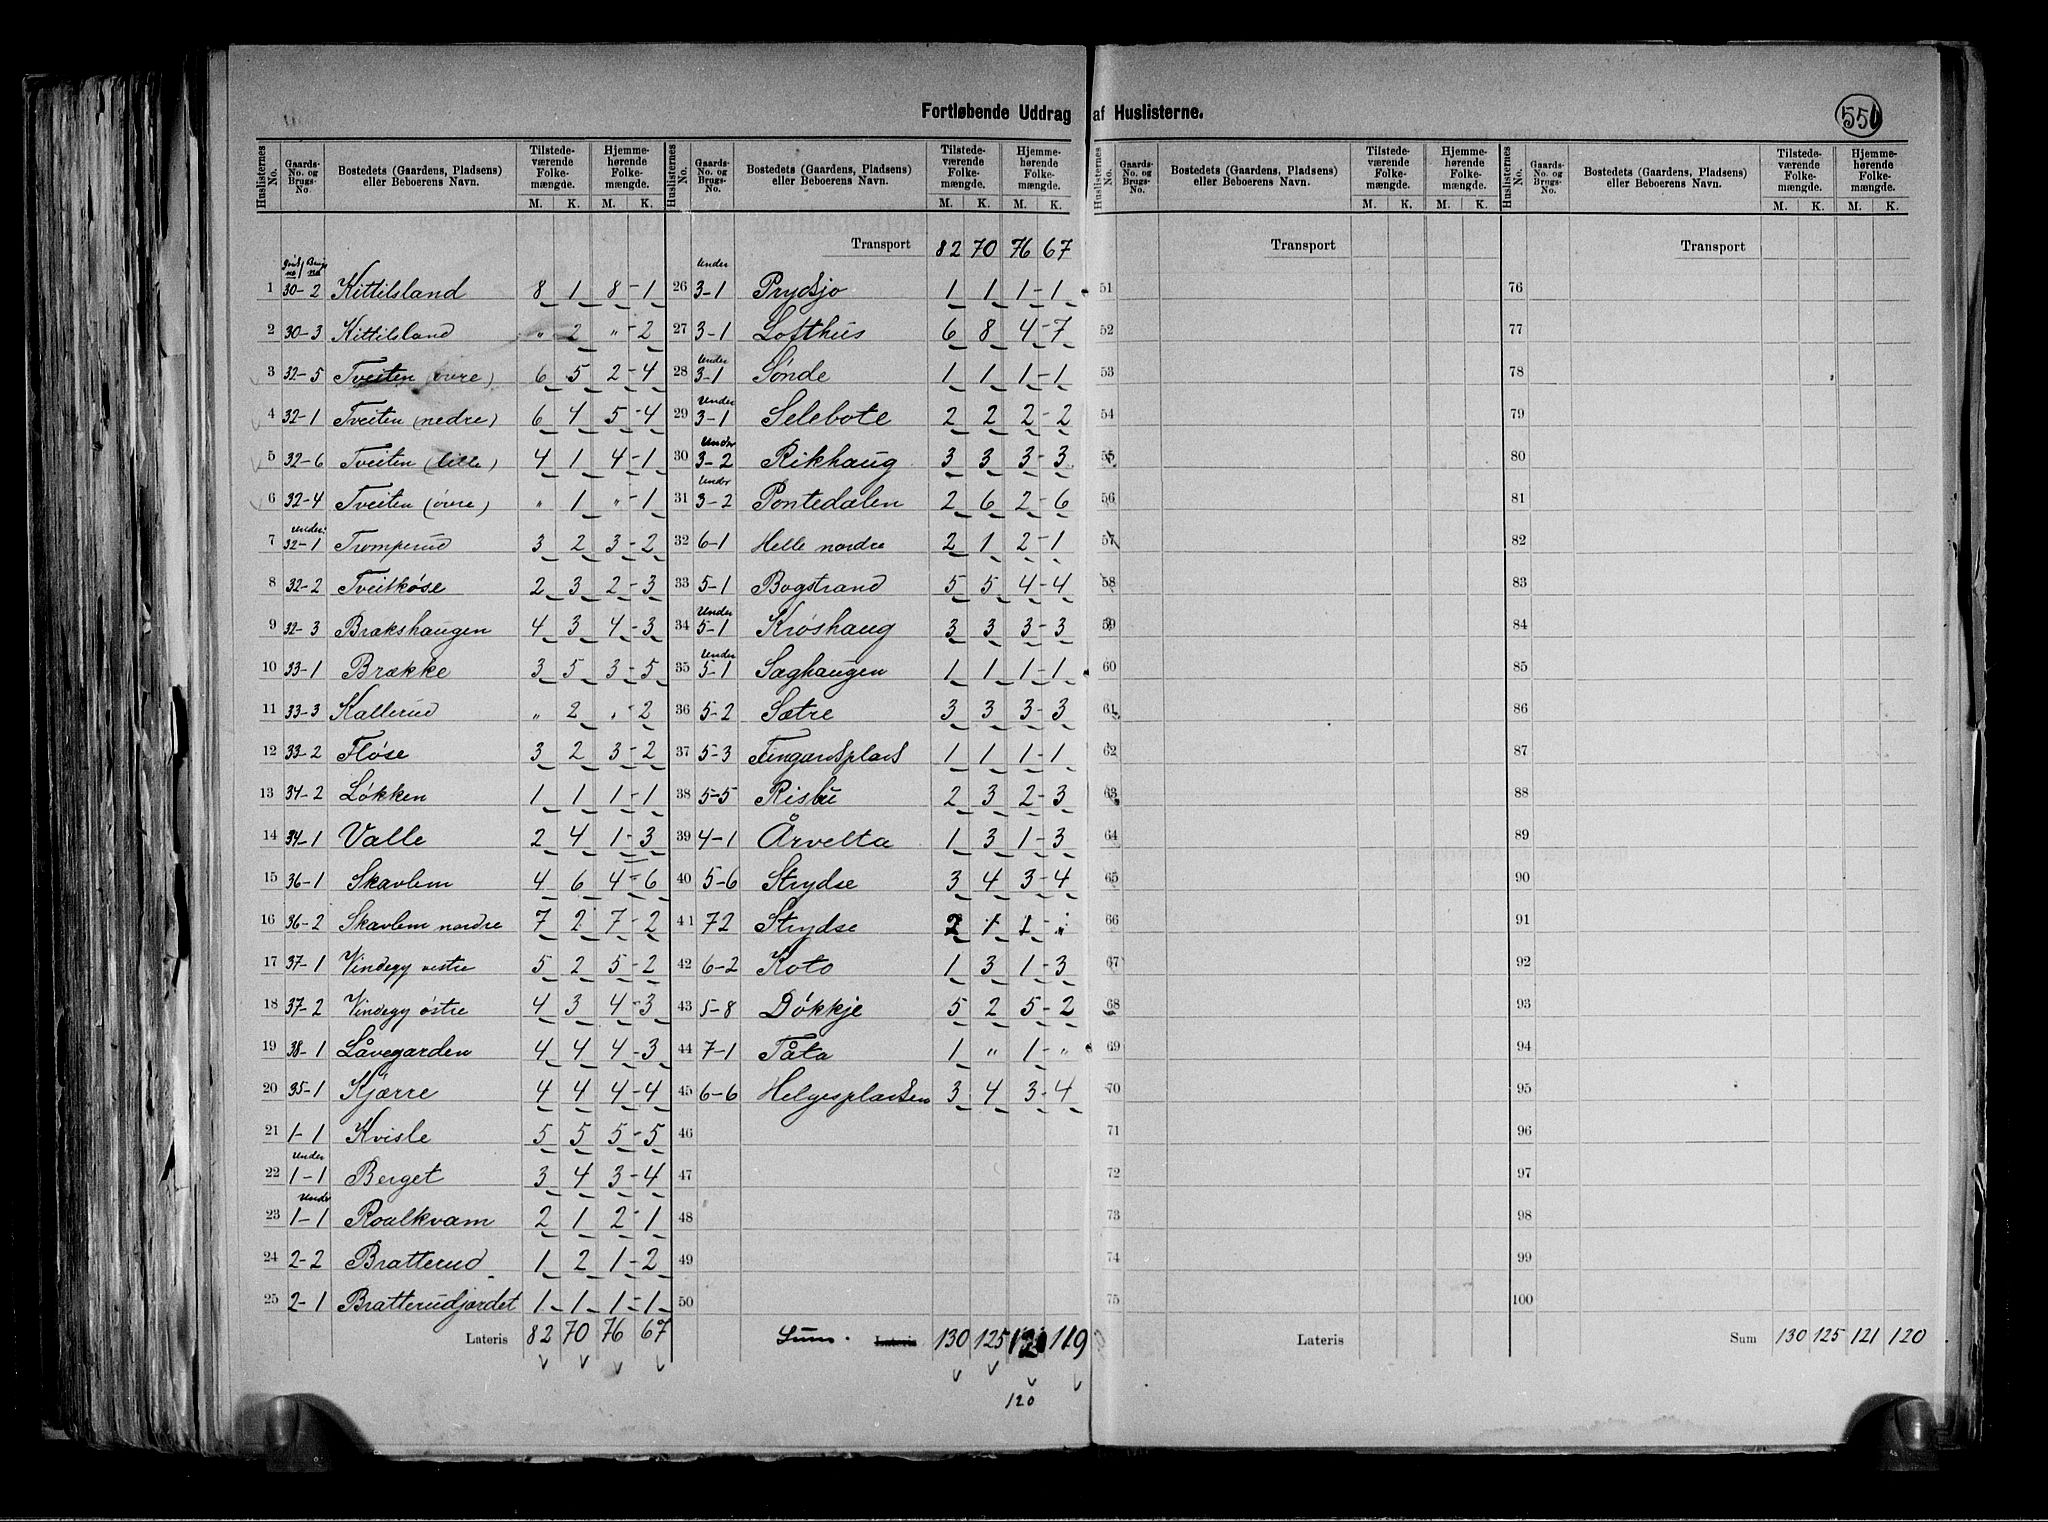 Fortløbende Uddrag af Huslisterne.
550
Huslisternes No. | Gaards-No. og Brugs-No. | Bostedets (Gaardens, Pladsens) eller Beboerens Navn. | Tilstedeværende Folkemængde. M. K. | Hjemmehørende Folkemængde. M. K.
1 30-2 Kittilsland 8 1 8-1
2 30-3 Kittilsland " 2 "-2
3 32-5 Tveiten (øvre) 6 5 2-4
4 32-1 Tveiten (nedre) 6 4 5-4
5 32-6 Tveiten (lille) 4 1 4-1
6 32-4 Tveiten (øvre) " 1 "-1
7 Under 32-1 Tromperud 3 2 3-2
8 32-2 Tveitkøse 2 3 2-3
9 32-3 Brakshaugen 4 3 4-3
10 33-1 Brække 3 5 3-5
11 33-3 Kallerud " 2 "-2
12 33-2 Fløse 3 2 3-2
13 34-2 Løkken 1 1 1-1
14 34-1 Valle 2 4 1-3
15 36-1 Skavlem 4 6 4-6
16 36-2 Skavlem nordre 7 2 7-2
17 37-1 Vindegg vestre 5 2 5-2
18 37-2 Vindegg østre 4 3 4-3
19 38-1 Låvegarden 4 4 4-3
20 35-1 Kjærre 4 4 4-4
21 1-1 Kvisle 5 5 5-5
22 Under 1-1 Berget 3 4 3-4
23 Under 1-1 Roalkvam 2 1 2-1
24 2-2 Bratterud 1 2 1-2
25 2-1 Bratterudjordet 1 1 1-1
Lateris 82 70 76 67
Huslisternes No. | Gaards-No. og Brugs-No. | Bostedets (Gaardens, Pladsens) eller Beboerens Navn. | Tilstedeværende Folkemængde. M. K. | Hjemmehørende Folkemængde. M. K.
Transport 82 70 76 67
26 Under 3-1 Prydsjo 1 1 1-1
27 3-1 Lofthus 6 8 4-7
28 Under 3-1 Sønde 1 1 1-1
29 Under 3-1 Selebote 2 2 2-2
30 Under 3-2 Rikhaug 3 3 3-3
31 Under 3-2 Pontedalen 2 6 2-6
32 6-1 Helle nordre 2 1 2-1
33 5-1 Bogstrand 5 5 4-4
34 Under 5-1 Krøshaug 3 3 3-3
35 Under 5-1 Saghaugen 1 1 1-1
36 5-2 Sætre 3 3 3-3
37 5-3 Fingardsplads 1 1 1-1
38 5-5 Risbu 2 3 2-3
39 4-1 Årvelta 1 3 1-3
40 5-6 Strydse 3 4 3-4
41 72 Strydse 2 1 1-"
42 6-2 Koto 1 3 1-3
43 5-8 Døkkje 5 2 5-2
44 7-1 Tåta 1 " 1-"
45 6-6 Helgesplassen 3 4 3-4
46
47
48
49
50
Sum. Lateris 130 125 121 119
120
Huslisternes No. | Gaards-No. og Brugs-No. | Bostedets (Gaardens, Pladsens) eller Beboerens Navn. | Tilstedeværende Folkemængde. M. K. | Hjemmehørende Folkemængde. M. K.
Transport
51
52
53
54
55
56
57
58
59
60
61
62
63
64
65
66
67
68
69
70
71
72
73
74
75
Lateris
Huslisternes No. | Gaards-No. og Brugs-No. | Bostedets (Gaardens, Pladsens) eller Beboerens Navn. | Tilstedeværende Folkemængde. M. K. | Hjemmehørende Folkemængde. M. K.
Transport
76
77
78
79
80
81
82
83
84
85
86
87
88
89
90
91
92
93
94
95
96
97
98
99
100
Sum 130 125 121 120